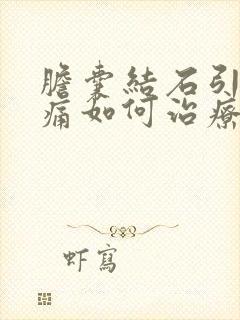 膽囊結石引
痛如何治療
虾寫